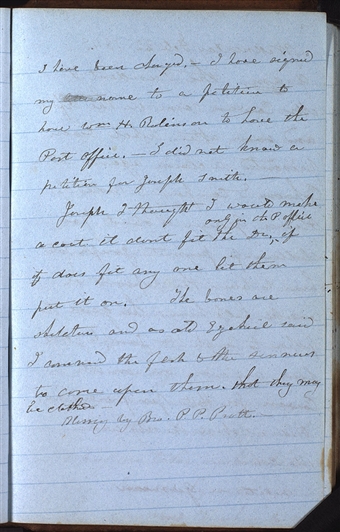 I have been sayed,— I have signed
my name to a petition to
have Wm H. Robinson to have the
Post office.— I did not know a
petition for Joseph Smith.—
Joseph I thought I would make
only in the P office
a coat it dont fit the Dr, if
it does fit any one let them
put it on. The bones are
skeletons and as old Ezekiel said
I command the flesh & the sinews
to come upon them that they may
be clothed
Hymn by Bro. P P. Pratt.—